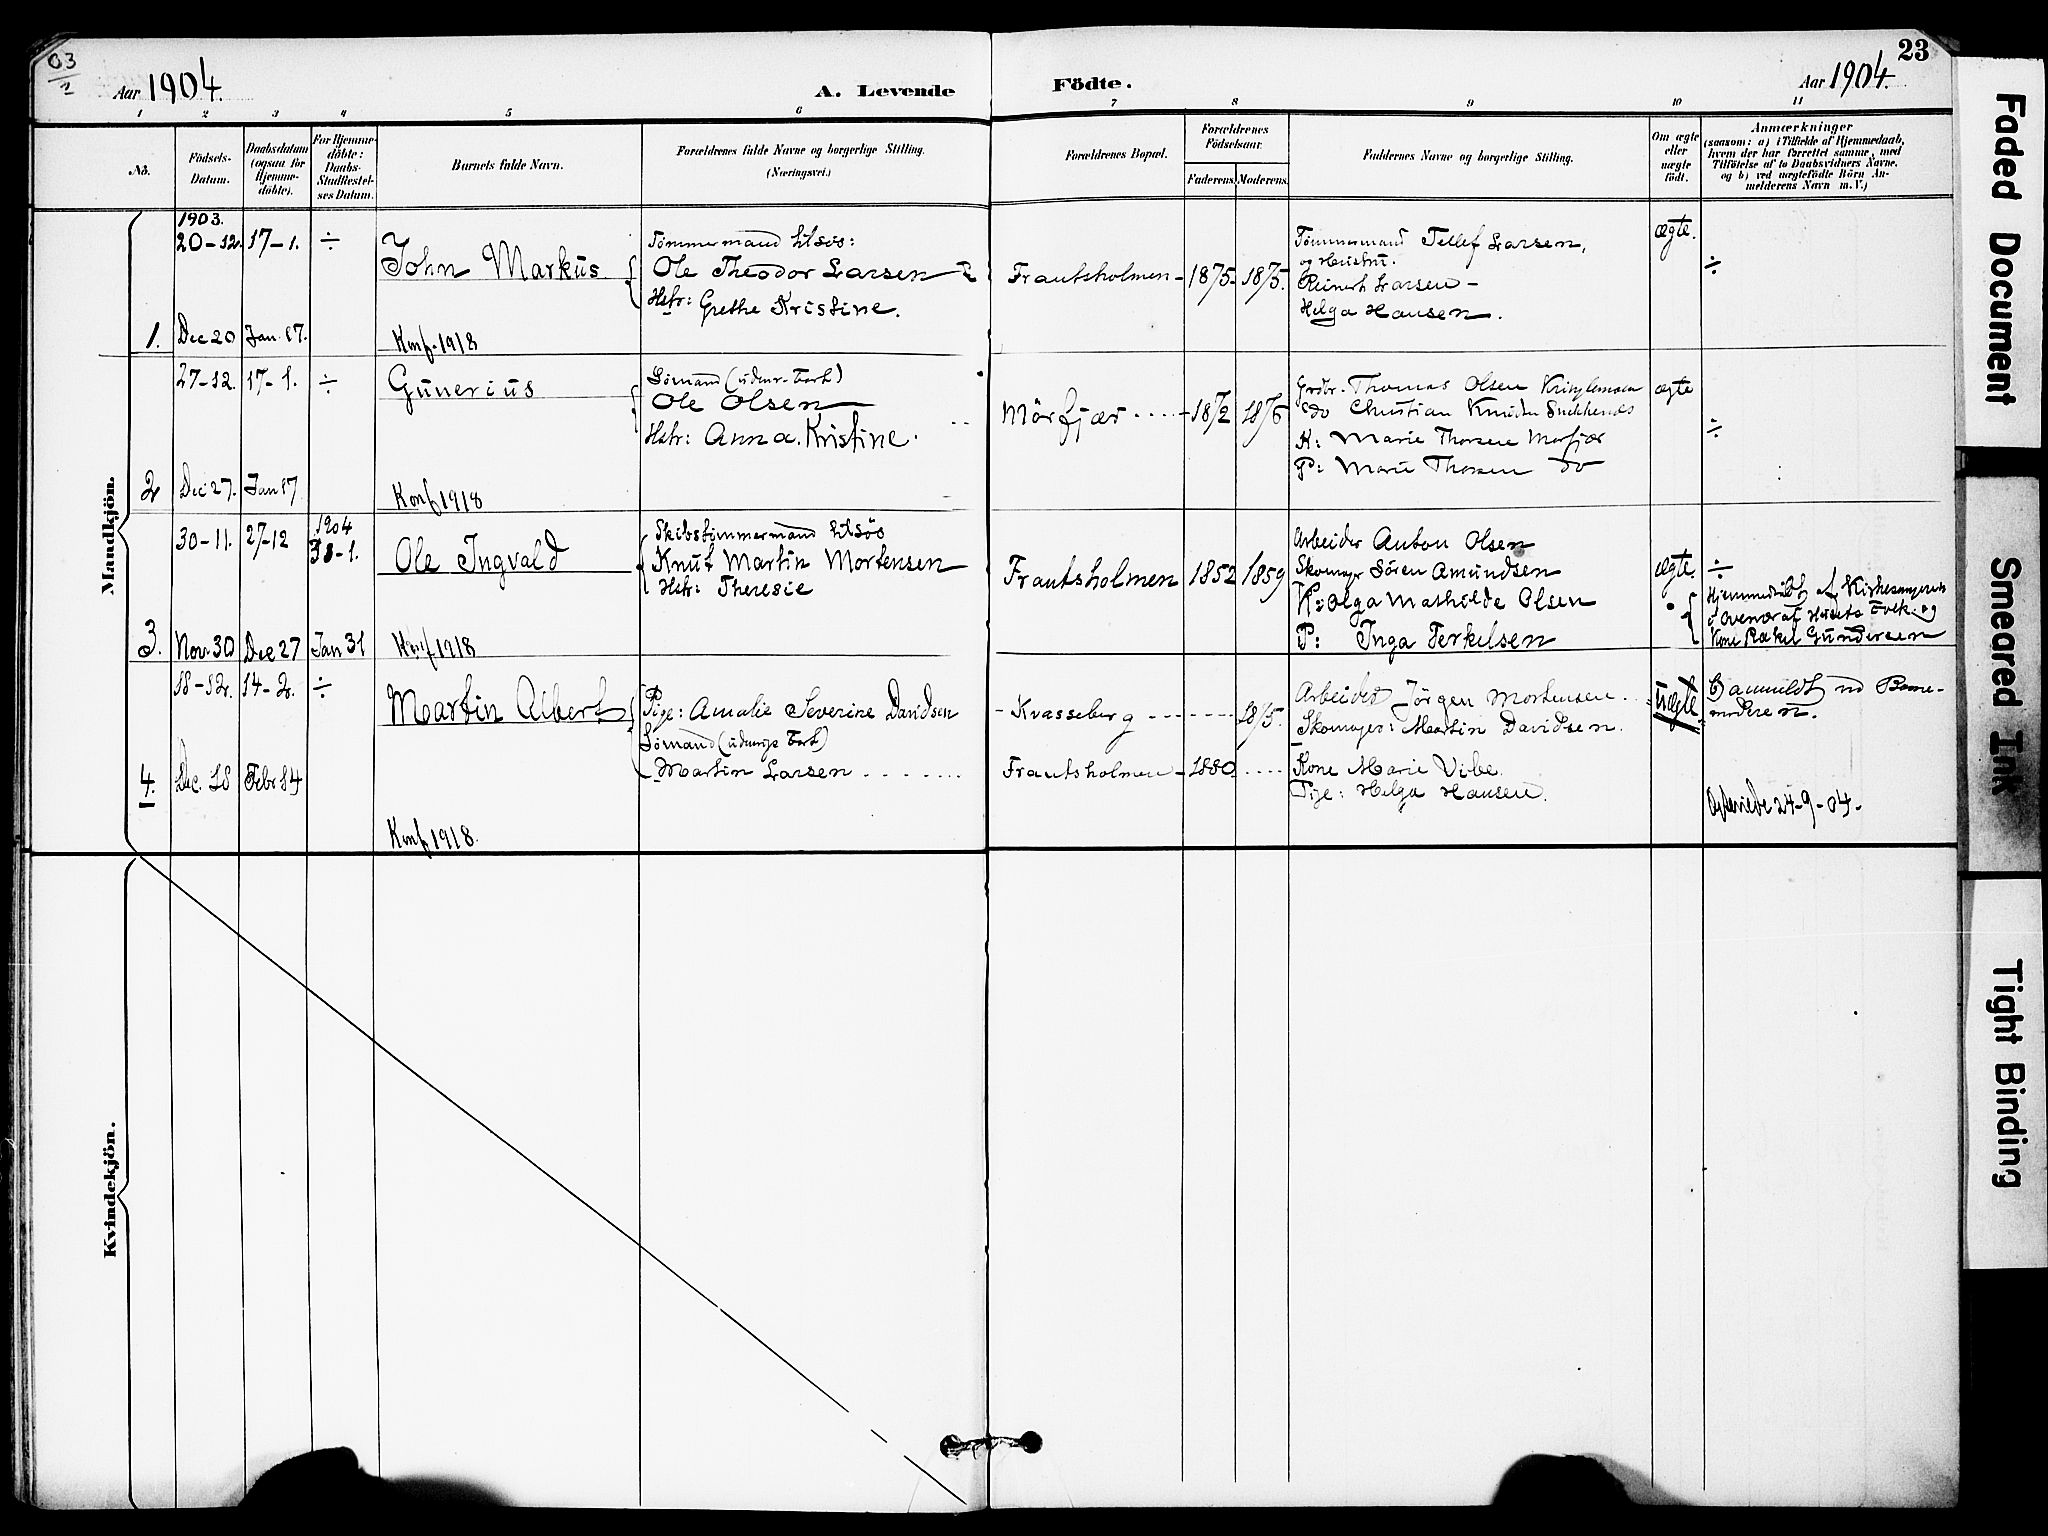 03
1
Aar 1904.
A. Levende Födte.
23
Aar 1904.
1 2 3 4 5 6 7 8 9 10 11
No.
Födsels-Datum.
Daabsdatum (ogsaa for Hjemme-döbte).
For Hjemme-döbte: Daabs-Stadfæstel-ses Datum.
Barnets fulde Navn.
Forældrenes fulde Navne og borgerlige Stilling.
(Næringsvei.)
Forældrenes Bopæl.
Forældrenes Födselsaar.
Faderens. Moderens.
Faddernes Navne og borgerlige Stilling.
Om ægte eller uægte födt.
Anmærkninger
(saasom: a) i Tilfælde af Hjemmedaab,
hvem der har forrettet samme, med
Tilföielse af to Daabsvidners Navne,
og b) ved uægtefödte Börn An-
melderens Navn m. V.)
Mandkjön.
1903.
20-12. 17-1. ÷
John Markus
Tömmermand
Ole Theodor Larsen
Hstr: Grethe Kristine.
Frautsholmen - 1875. 1875.
Tömmermand Tellef Larsen,
og Hustru.
Reinert Larsen -
Helga Hansen.
ægte.
÷
1. Dec 20 Jan. 17.
Konf. 1918
27-12. 17-1. ÷
Gunerius
Sömand
Ole Olsen
Hstr: Anna Kristine.
Mörfjær 1872 1876
Thomas Olsen
do Christian
K: Marie Thorsen Morfjær
P: Marie Thorsen do
ægte
÷
2 Dec 27. Jan 17
Konf 1918
30-11. 27-12 1904
31-1.
Ole Ingvald
Skibstömmermand
Knut Martin Mortensen
Hstr: Theresie
Frautsholmen 1852 1859
Arbeider Anton Olsen
Skomager Sören Amundsen
K: Olga Mathilde Olsen
P: Inga Terkelsen
ægte.
÷
Hjemmedöbt af Kirkesangeren
i Overvær af Husets Folk og
Kone Rakel Gundersen
3. Nov. 30 Dec 27 Jan 31
Konf 1918
18-12. 14-2. ÷
Martin Albert
Pige: Amalie Severine Davidsen
Sömand
Martin Larsen
- Kvasseberg 1875.
Frautsholmen - 1880
Arbeider Jörgen Mortensen
Skomager: Martin Davidsen.
Kone Marie Vibe
Pige: Helga Hansen.
uægte
Barne-
moderen.
24-9-04.
4. Dec. 18 Febr 14
Konf 1918.
Kvindekjön.
Faded Document
Smeared Ink
Tight Binding